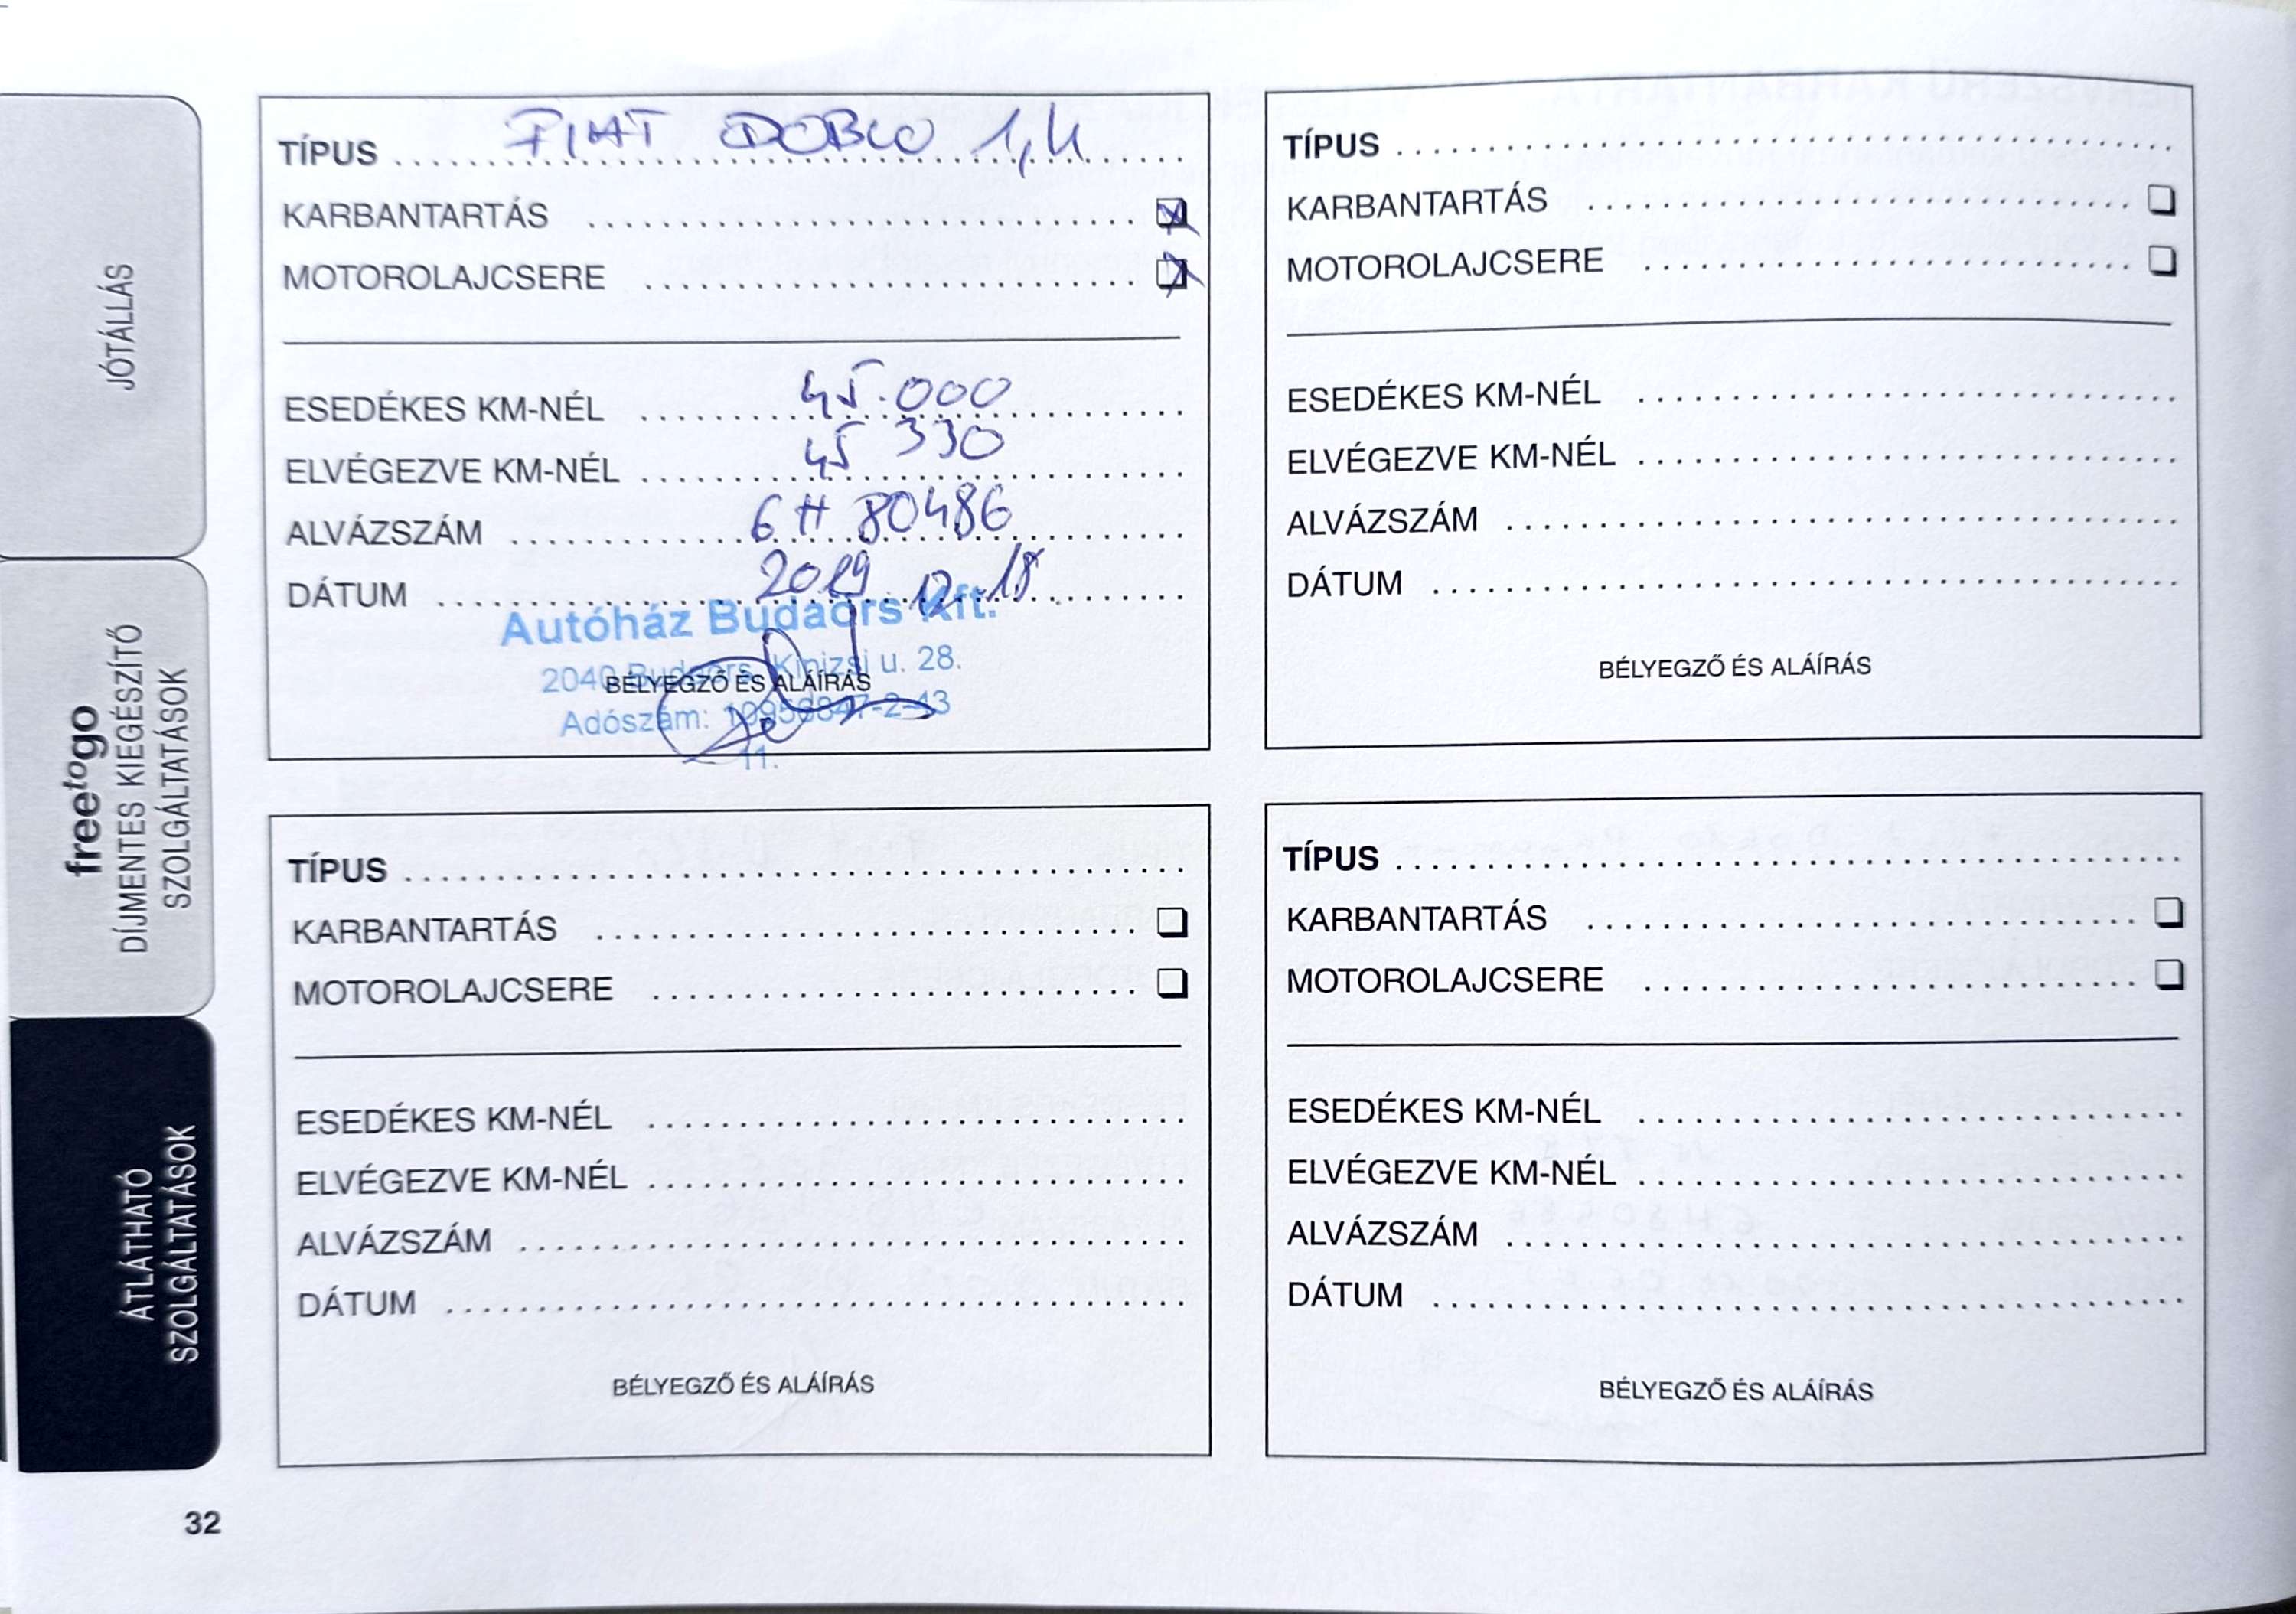 JÓTÁLLÁS
freetogo
DÍJMENTES KIEGÉSZÍTŐ
SZOLGÁLTATÁSOK
ÁTLÁTHATÓ
SZOLGÁLTATÁSOK
TÍPUS FIAT DOBLO 1,4
KARBANTARTÁS
MOTOROLAJCSERE
ESEDÉKES KM-NÉL 45.000
ELVÉGEZVE KM-NÉL 45 330
ALVÁZSZÁM 6H 80486
DÁTUM 2019 12. 18
Autóház Budaörs Kft.
2040 Budaörs, Kinizsi u. 28.
BÉLYEGZŐ ÉS ALÁÍRÁS
Adószám:
11.
TÍPUS
KARBANTARTÁS
MOTOROLAJCSERE
ESEDÉKES KM-NÉL
ELVÉGEZVE KM-NÉL
ALVÁZSZÁM
DÁTUM
BÉLYEGZŐ ÉS ALÁÍRÁS
TÍPUS
KARBANTARTÁS
MOTOROLAJCSERE
ESEDÉKES KM-NÉL
ELVÉGEZVE KM-NÉL
ALVÁZSZÁM
DÁTUM
BÉLYEGZŐ ÉS ALÁÍRÁS
TÍPUS
KARBANTARTÁS
MOTOROLAJCSERE
ESEDÉKES KM-NÉL
ELVÉGEZVE KM-NÉL
ALVÁZSZÁM
DÁTUM
BÉLYEGZŐ ÉS ALÁÍRÁS
32